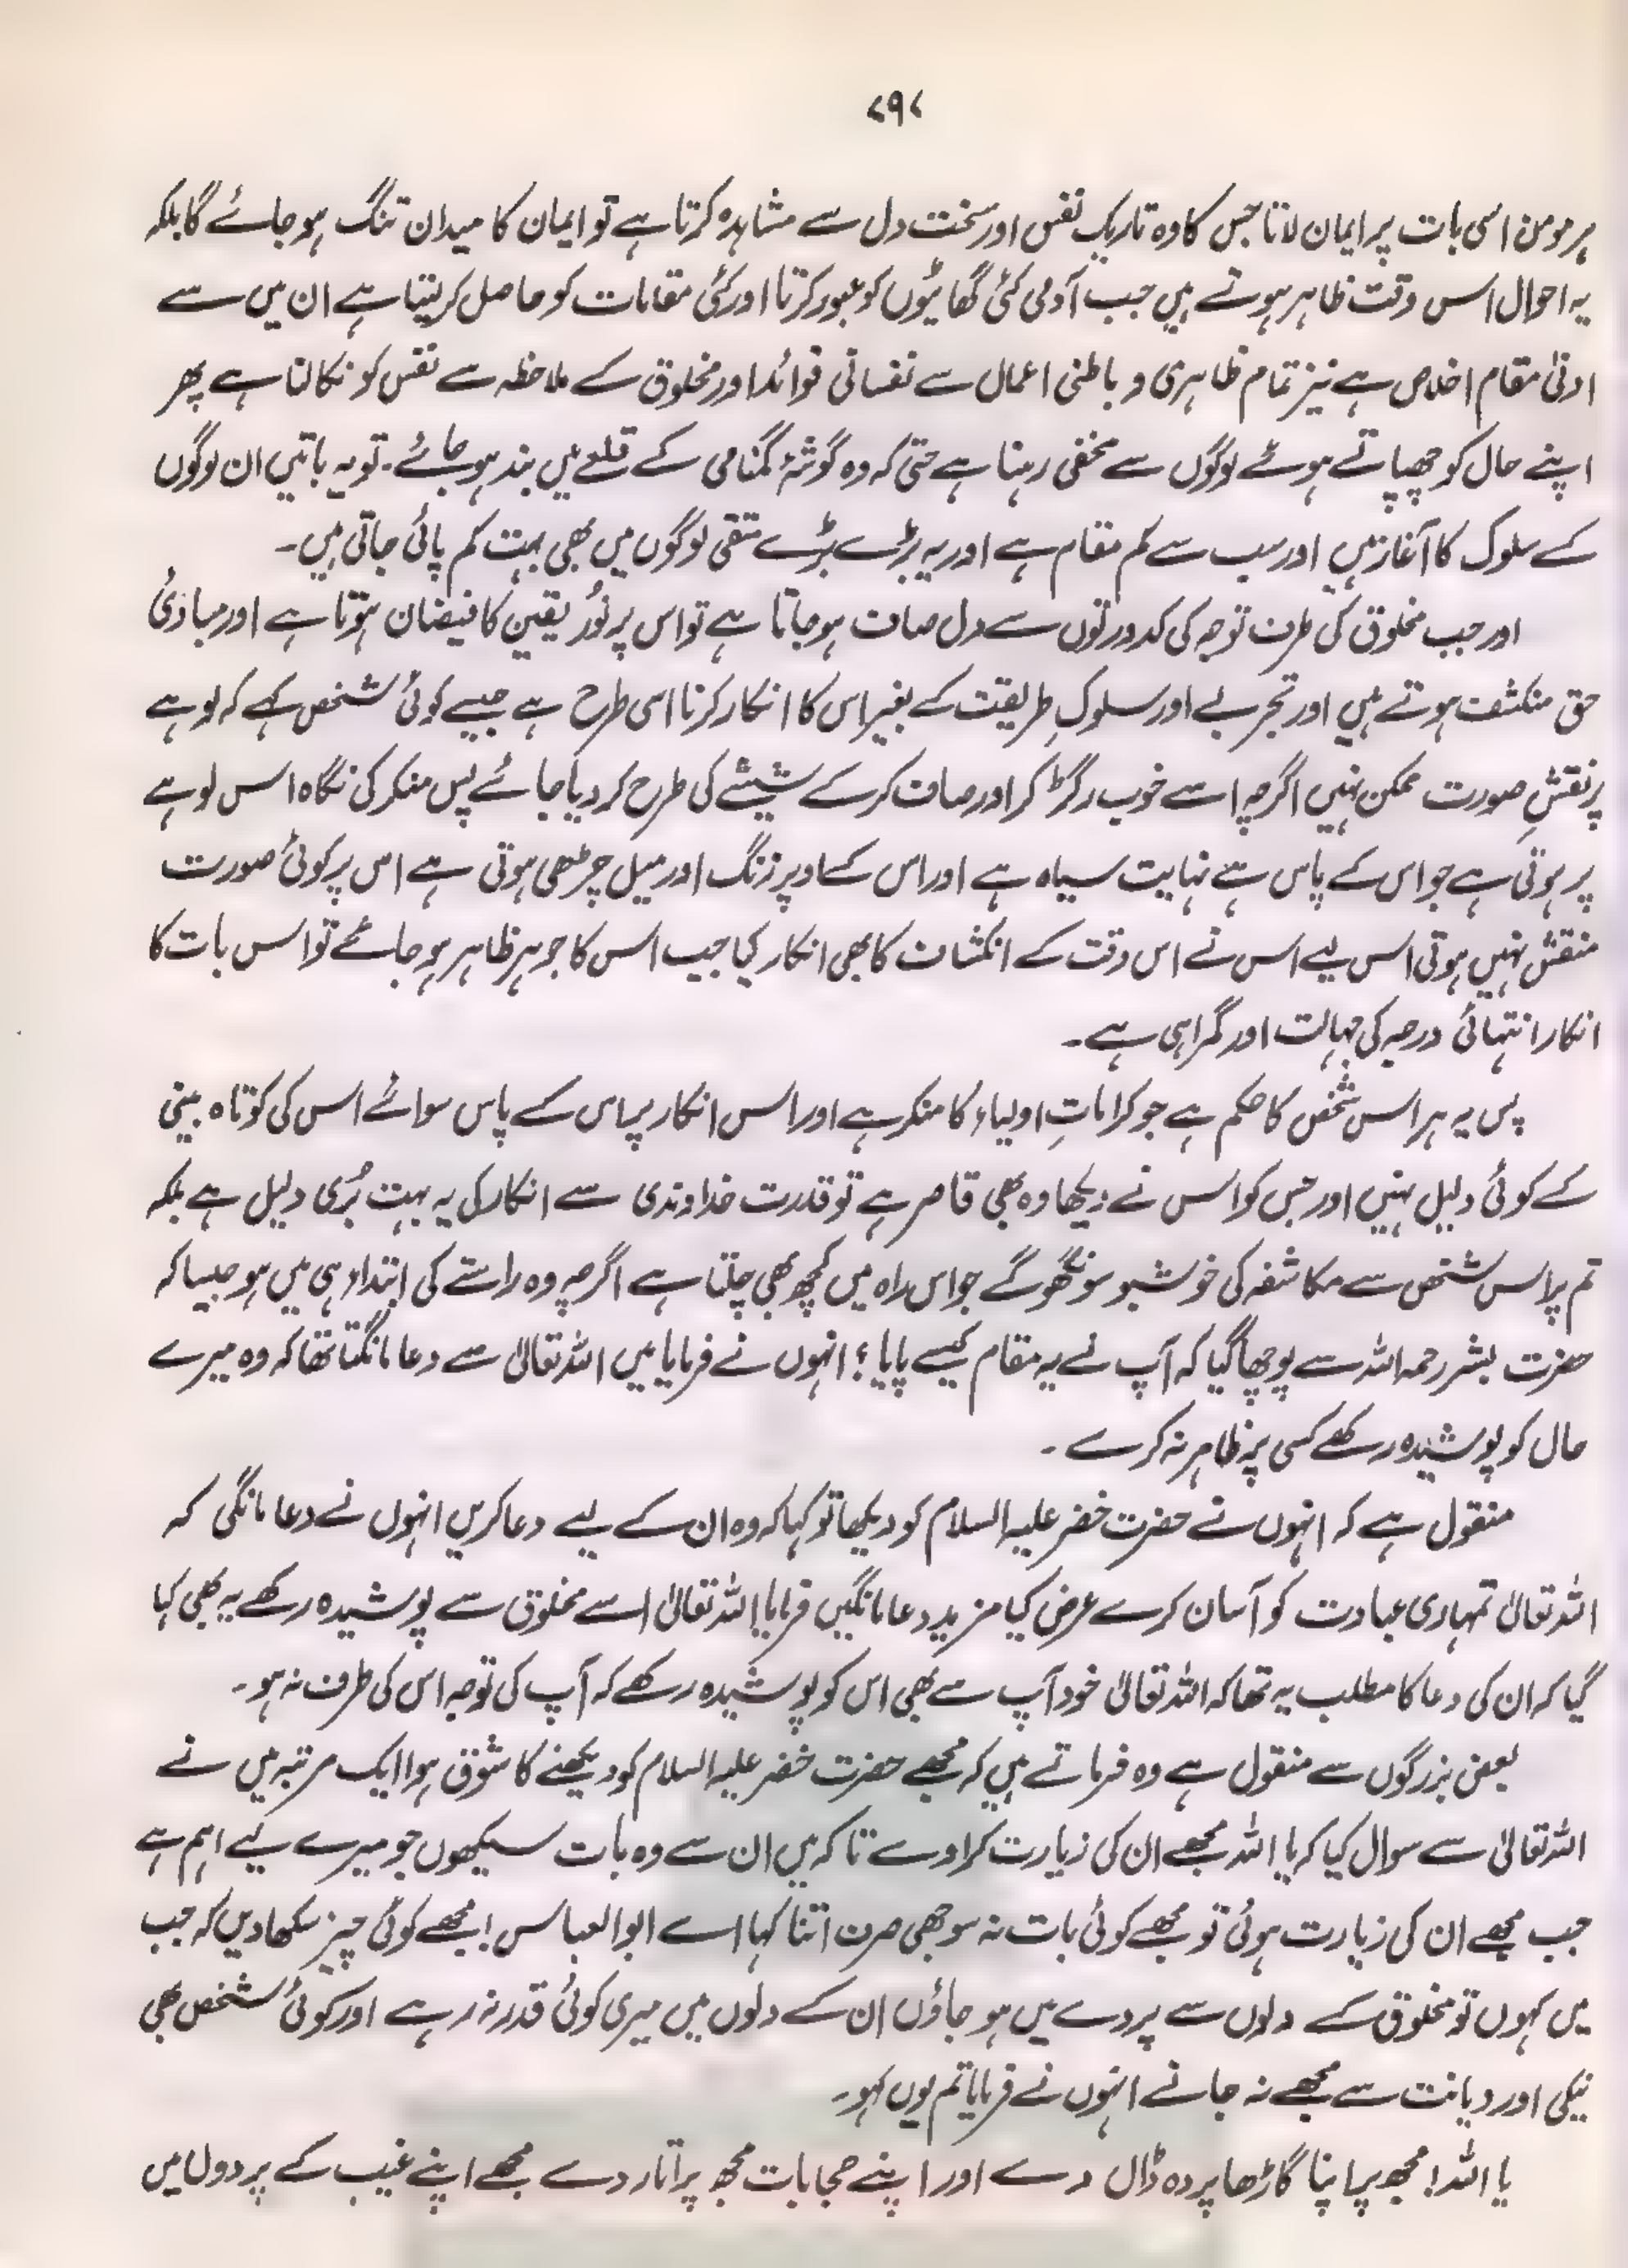 ۷۹۷
ہر مومن اسی بات پر ایمان لاتا جس کا وہ تاریک نفس اور سخت دل سے مشاہدہ کرتا ہے تو ایمان کا میدان تنگ ہو جائے گا بلکہ
یہ احوال اس وقت ظاہر ہوتے ہیں جب آدمی کئی گھاٹیوں کو عبور کرتا اور کئی مقامات کو حاصل کر لیتا ہے ان میں سے
ادنیٰ مقام اخلاص ہے نیز تمام ظاہری و باطنی اعمال سے نفسانی فوائد اور مخلوق کے ملاحظہ سے نفس کو نکالتا ہے پھر
اپنے حال کو چھپاتے ہوئے لوگوں سے مخفی رہنا ہے حتیٰ کہ وہ گوشۂ گمنامی کے قلعے میں بند ہو جائے۔ تو یہ باتیں ان لوگوں
کے سلوک کا آغاز ہیں اور سب سے کم مقام ہے اور یہ بڑے بڑے متقی لوگوں میں بھی بہت کم پائی جاتی ہیں۔
اور جب مخلوق کی طرف توجہ کی کدورتوں سے دل صاف ہو جاتا ہے تو اس پر نورُ یقین کا فیضان ہوتا ہے اور مبادئ
حق منکشف ہوتے ہیں اور تجربے اور سلوکِ طریقت کے بغیر اس کا انکار کرنا اسی طرح ہے جیسے کوئی شخص کہے کہ لوہے
پر نقشِ صورت ممکن نہیں اگرچہ اسے خوب رگڑ کر اور صاف کر کے شیشے کی طرح کر دیا جائے پس منکر کی نگاہ اس لوہے
پر ہوتی ہے جو اس کے پاس ہے نہایت سیاہ ہے اور اس کے اوپر زنگ اور میل چڑھی ہوتی ہے اس پر کوئی صورت
منقش نہیں ہوتی اس لیے اس نے اس وقت کے انکشاف کا بھی انکار کیا جب اس کا جوہر ظاہر ہو جائے تو اس بات کا
انکار انتہائی درجہ کی جہالت اور گمراہی ہے۔
پس یہ ہر اس شخص کا حکم ہے جو کراماتِ اولیاء کا منکر ہے اور اس انکار پر اس کے پاس سوائے اس کی کوتاہ بینی
کے کوئی دلیل نہیں اور جس کو اس نے دیکھا وہ بھی قاصر ہے تو قدرت خداوندی سے انکار کی یہ بہت بُری دلیل ہے بلکہ
تم ہر اس شخص سے مکاشفہ کی خوشبو سونگھو گے جو اس راہ میں کچھ بھی چلتا ہے اگرچہ وہ راستے کی ابتداء ہی میں ہو جیسا کہ
حضرت بشر رحمہ اللہ سے پوچھا گیا کہ آپ نے یہ مقام کیسے پایا؟ انہوں نے فرمایا میں اللہ تعالیٰ سے دعا مانگتا تھا کہ وہ میرے
حال کو پوشیدہ رکھے کسی پر ظاہر نہ کرے۔
منقول ہے کہ انہوں نے حضرت خضر علیہ السلام کو دیکھا تو کہا کہ وہ ان کے لیے دعا کریں انہوں نے دعا مانگی کہ
اللہ تعالیٰ تمہاری عبادت کو آسان کرے عرض کیا مزید دعا مانگیں فرمایا اللہ تعالیٰ اسے مخلوق سے پوشیدہ رکھے یہ بھی کہا
گیا کہ ان کی دعا کا مطلب یہ تھا کہ اللہ تعالیٰ خود آپ سے بھی اس کو پوشیدہ رکھے کہ آپ کی توجہ اس کی طرف نہ ہو۔
بعض بزرگوں سے منقول ہے وہ فرماتے ہیں کہ مجھے حضرت خضر علیہ السلام کو دیکھنے کا شوق ہوا ایک مرتبہ میں نے
اللہ تعالیٰ سے سوال کیا کہ یا اللہ مجھے ان کی زیارت کرا دے تاکہ میں ان سے وہ بات سیکھوں جو میرے لیے اہم ہے
جب مجھے ان کی زیارت ہوئی تو مجھے کوئی بات نہ سوجھی صرف اتنا کہا اے ابوالعباس! مجھے کوئی چیز سکھا دیں کہ جب
میں کہوں تو مخلوق کے دلوں سے پردے میں ہو جاؤں ان کے دلوں میں میری کوئی قدر نہ رہے اور کوئی شخص بھی
نیکی اور دیانت سے مجھے نہ جانے انہوں نے فرمایا تم یوں کہو۔
یا اللہ! مجھ پر اپنا گاڑھا پردہ ڈال دے اور اپنے حجابات مجھ پر اتار دے مجھے اپنے غیب کے پردوں میں